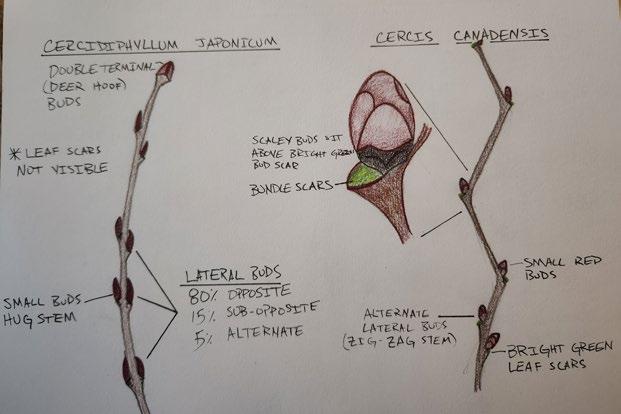 CERCIDIPHYLLUM JAPONICUM
DOUBLE TERMINAL
(DEER HOOF)
BUDS
* LEAF SCARS
NOT VISIBLE
SMALL BUDS
HUG STEM
LATERAL BUDS
80% OPPOSITE
15% SUB-OPPOSITE
5% ALTERNATE
CERCIS CANADENSIS
SCALEY BUDS SIT
ABOVE BRIGHT GREEN
BUD SCAR
BUNDLE SCARS
SMALL RED
BUDS
ALTERNATE
LATERAL BUDS
(ZIG-ZAG STEM)
BRIGHT GREEN
LEAF SCARS